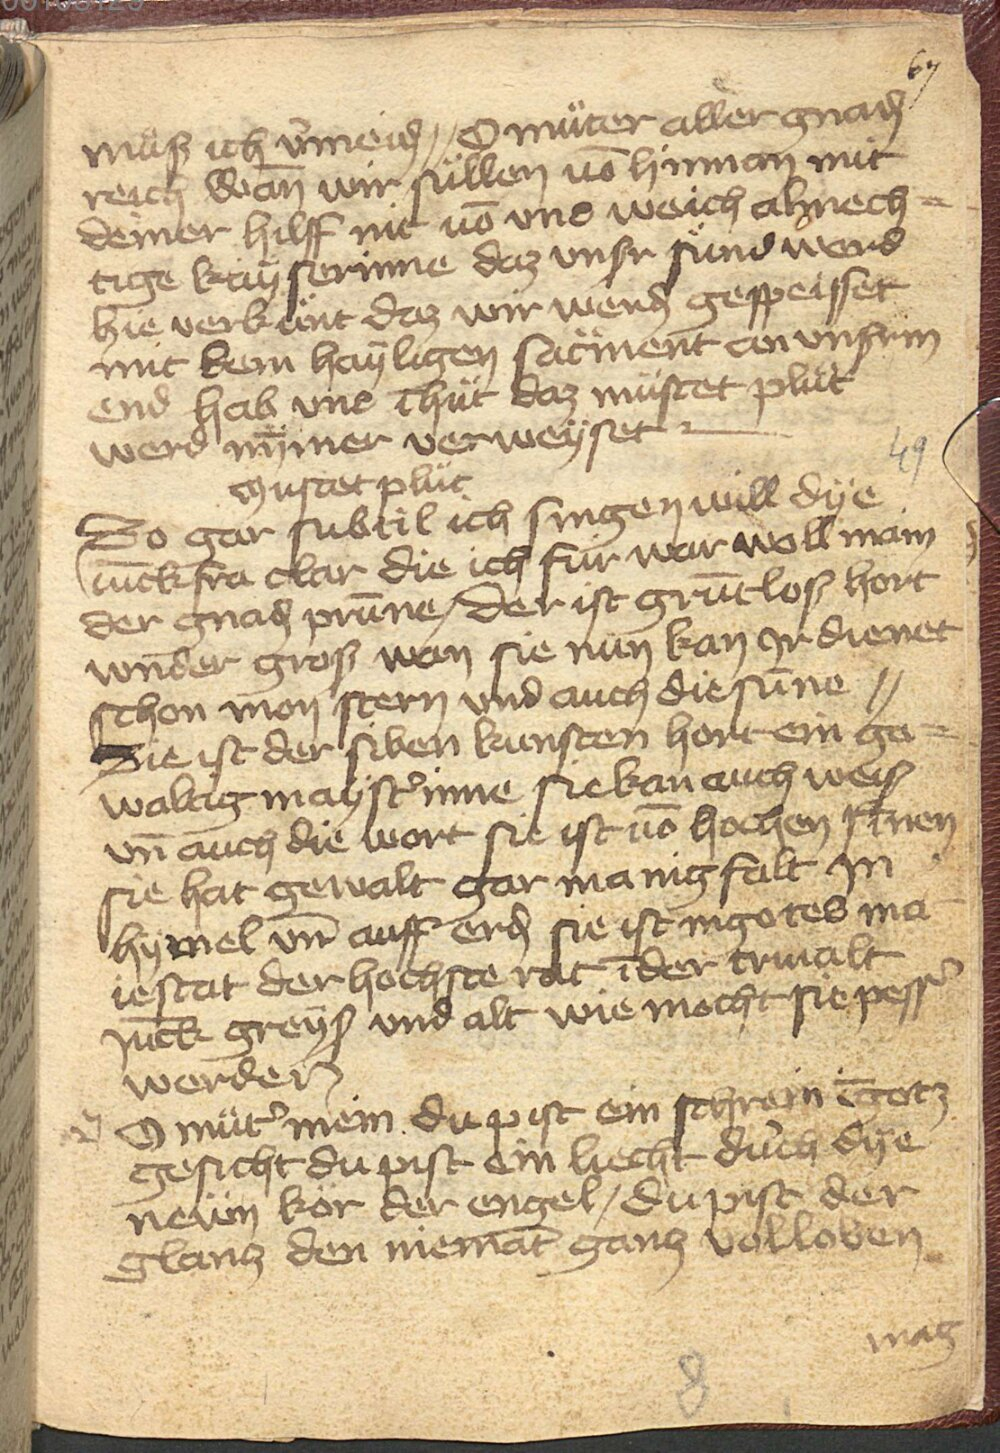 67
müß ich v̄meidn // O müter aller gnadn
reich Wan̄ wir süllen vō hinnan mit
deiner hilff nit vō vns weich almech=
tige kaÿserinne daz vnsr sünd werd
hie verkünt daz wir werdn gespeisset
mit dem haÿligen sacment an vnserm
end hab vns ī hüt daz müstet plüt
werd nȳmer verweÿset
Mustet plüt
49
So gar subtil ich singen will dÿe
iūckfra clar die ich für war woll main
der gnadn prūne / der ist grūtloß hort
wnder groß wan sie nun kan Jr dienet
schon mon stern vnd auch die sūne //
Sie ist der siben kunsten hort ein ge=
waltig maÿst'inne sie kan auch weiß
vn̄ auch die wort sie ist vō hochen sinen
sie hat gewalt gar manigfalt Jn
hÿmel vn̄ auff erdn sie ist in gotes ma
iestat der hochste rat ī der triualt
Jūck greÿß vnd alt wie mocht sie pess'
werden
O müt' mein du pist ein schrein ī gotz
gesicht du pist ein liecht durch dÿe
neün kör der engel / du pist der
glantz den niemāt gantz volloben
mag
8